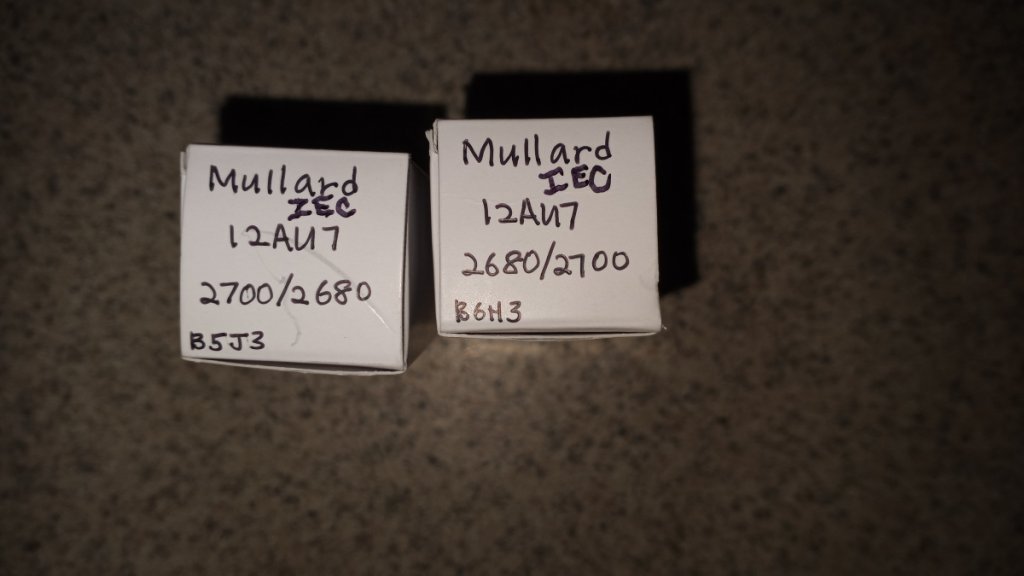 Mullard
IEC
12AU7
2700/2680
B5J3
Mullard
IEC
12AU7
2680/2700
B6H3